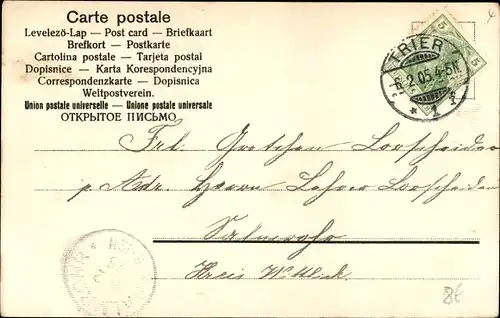 Carte postale
Levelező-Lap — Post card — Briefkaart
Brefkort — Postkarte
Cartolina postale — Tarjeta postal
Dopisnice - Karta Korespondencyjna
Correspondenzkarte — Dopisnica
Weltpostverein.
Union postale universelle — Unione postale universale
ОТКРЫТОЕ ПИСЬМО
5 5
TRIER
2.05.4-5N
* 1
Frl. Gretchen Lorscheider
p. Adr. Herrn Lehrer Lorscheider
Salmrohr
Kreis Wittlich